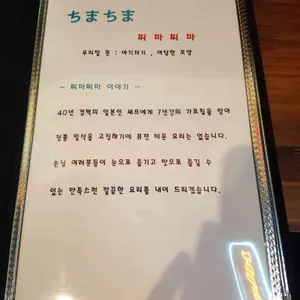 ちまちま
찌마찌마
우리말 뜻 : 아기자기 , 아담한 모양
- 찌마찌마 이야기 -
40년 경력의 일본인 쉐프에게 7년간의 가르침을 받아
정통 일식을 고집하기에 퓨전 매운 요리는 없습니다.
손님 여러분들이 눈으로 즐기고 맛으로 즐길 수
있는 만족스런 깔끔한 요리를 내어 드리겠습니다.